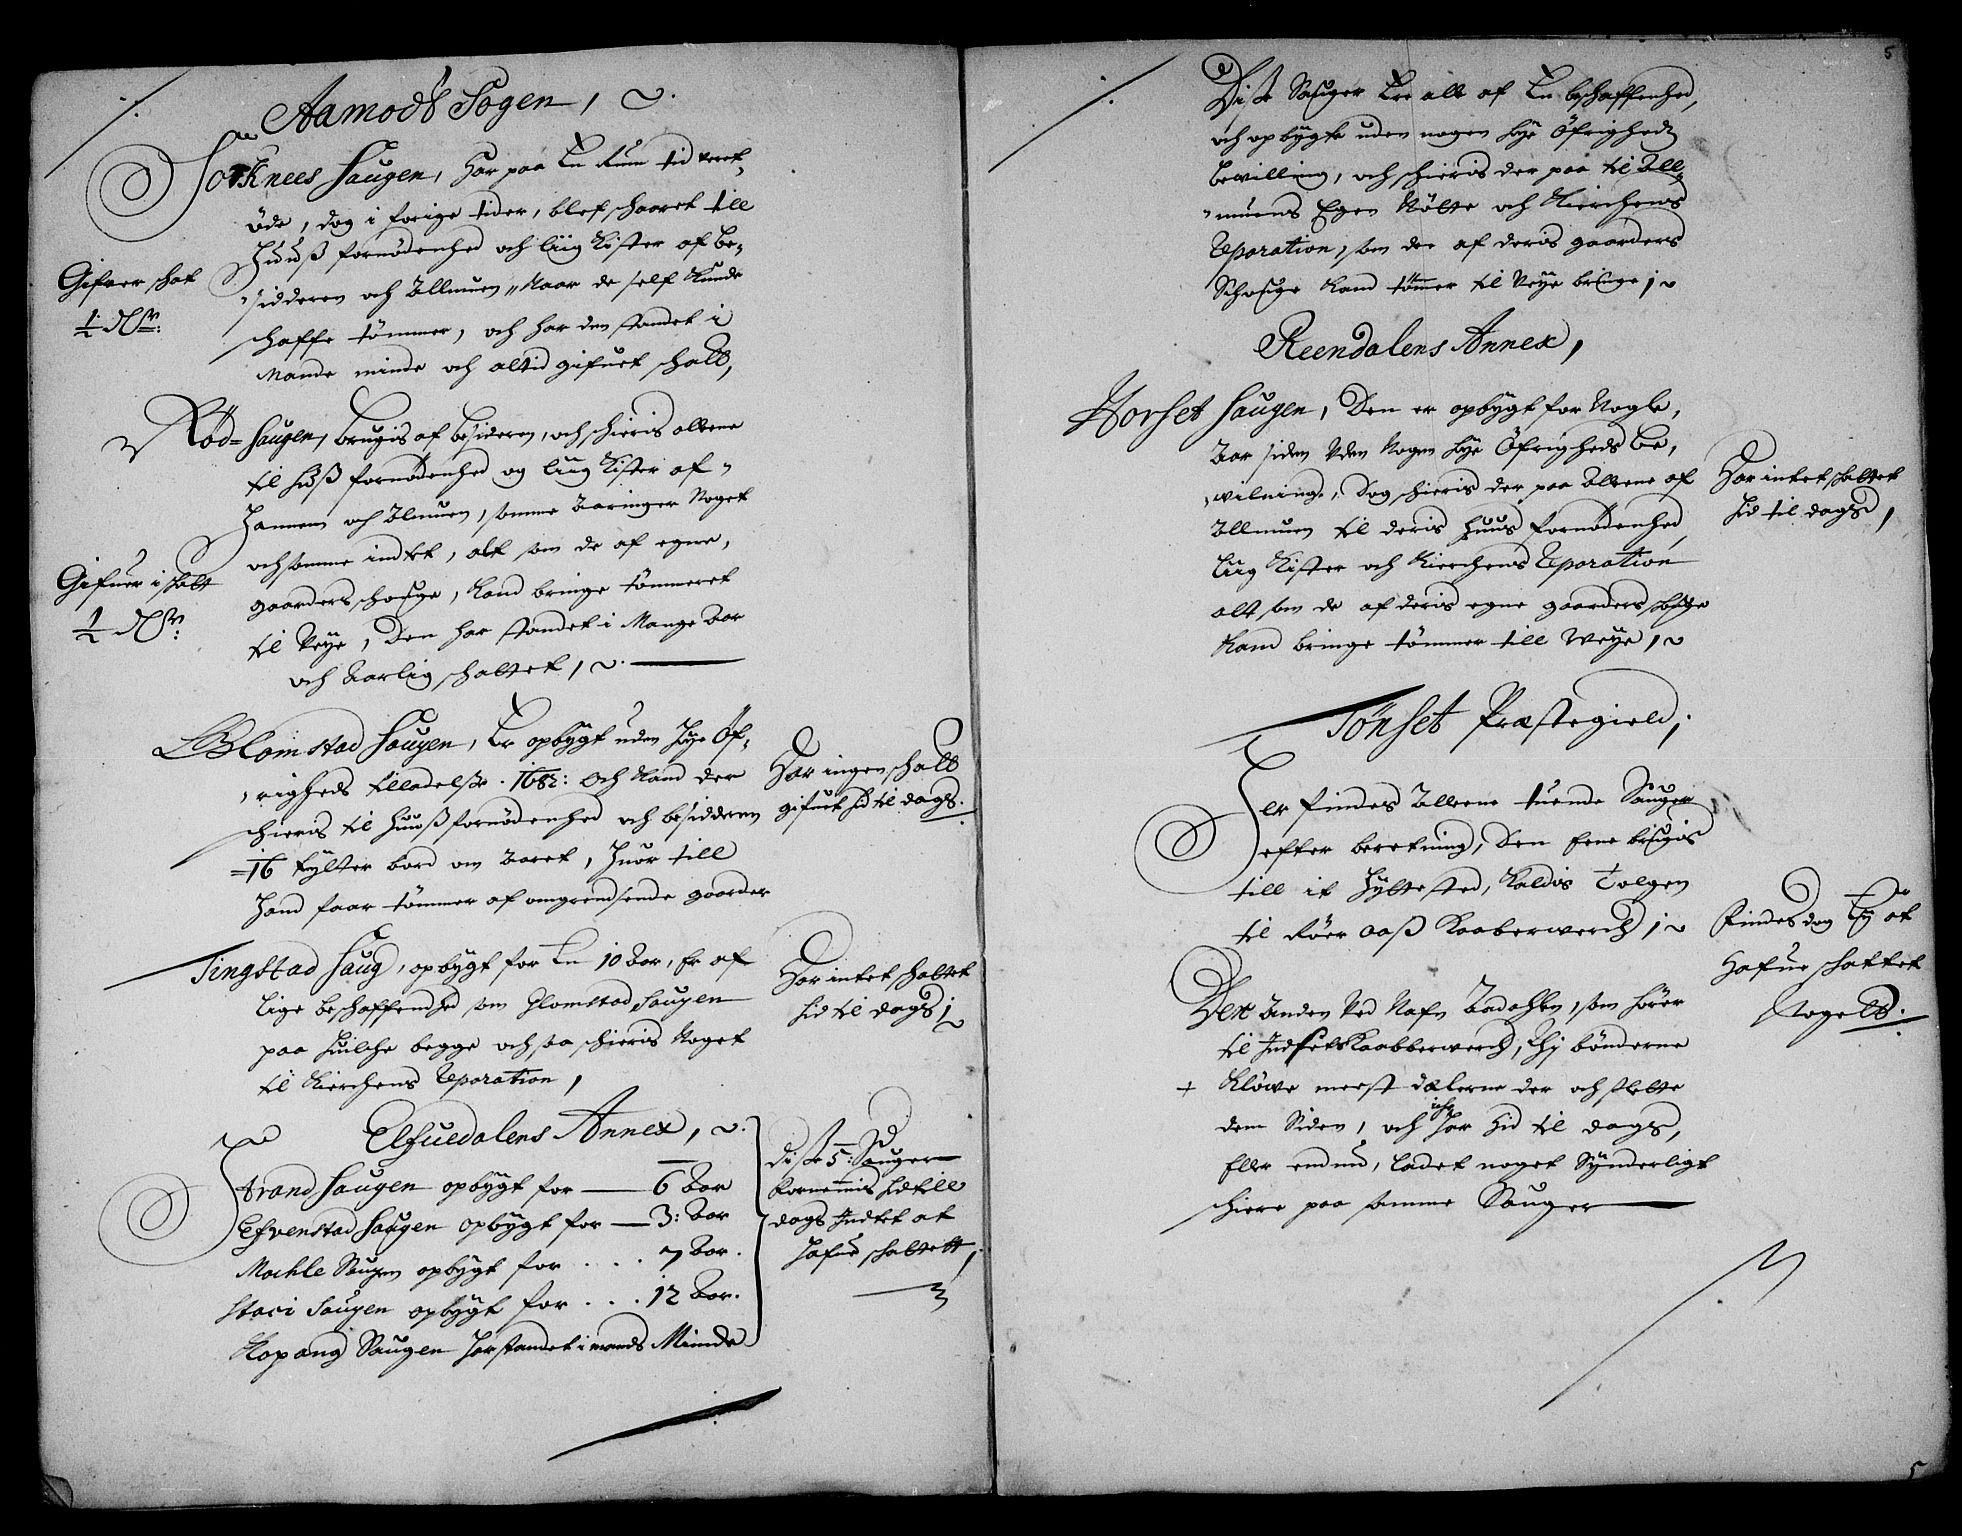 Aamodt Sogen,
Sorknees Saugen, Har paa En Rum tid veret
øde, dog i forige tider, blef schaaret till
Huuß fornødenhed och liig Kister af be-
sidderen och Allmuen, Naar de self Kunde
schaffe tømmer, och har den standet i
Mande minde och altid gifuet schatt,
Gifuer schat
1/2 dlr:
Rød-Saugen, brugis af besidderen, och schieris alleene
til Huß fornødenhed og liig Kister af
Hannem och Almuen, somme Aaringer Noget
och somme indtet, alt som de af egne,
gaarders schouge, Kand bringe tømmeret
til Veye, Den har standet i Mange Aar
och Aarlig schattet,
Gifuer i schatt
1/2 dlr:
Glomstad Saugen, Er opbygt uden Høye Øf-
righeds tilladelse. 1682: Och Kand der
schieris til Huußfornødenhed och besidderen
16 tylter bord om Aaret, Huor till
Hand faar tømmer af omgrendsende gaarder
Har ingen schatt
gifuet hid til dags.
Tingstad Saug, opbygt for En 10 Aar, Er af
lige beschaffenhed som Glomstad Saugen
paa huilche begge och saa schieris Noget
til Kierchens Reparation,
Har intet schattet
hid til dags,
Elfuedalens Annex,
Strand Saugen opbygt for 6 Aar
Efvenstad Saugen opbygt for 3: Aar
Mochle Saugen opbygt for . . . . 7 Aar.
Staci Saugen opbygt for . . . 12 Aar.
Kopang Saugen Har standet i mands Minde
Diße 5: Sauger
fornemmis hid till
dags Indtet at
Hafue schattett,
5
Diße Sauger Ere alle af En beschaffenhed,
och opbygte uden nogen høye Øfrigheds
bewilling, och schieris der paa til All-
muens Egen Nøtte och Kierchens
Reparation, som de af deris gaarders
Schouge Kand tømmer til Veye bringe,
Reendalens Annex,
Horset Saugen, Den er opbygt for Nogle,
Aar siden Uden Nogen høye Øfrigheds be-
wilning, Dog schieris der paa Alleene af
Allmuen til deris Huus fornødenhed
Liig Kister och Kierchens Reparation
alt som de af deris egne gaarders schouge
Kand bringe tømmer till Weye,
Har intet schattet
hid til dags,
Tønset Præstegield,
Her findes Alleene tuende Sauger
efter beretning, Den Eene brugis
till it Hyttested, Kaldis Tolgen
til Røer Aaß Kaaberwerch,
Findes dog Ey at
Hafue schattet
Noget.
Den Anden Ved Nafn Aadahlen, som hører
til Indsets Kaabberwerch, Thj bønderne
+ Kløwe meest dælerne der och slette
dem Siden, och har hid til dags,
Eller endnu, ladet noget Synderligt
schiere paa samme Sauger
5